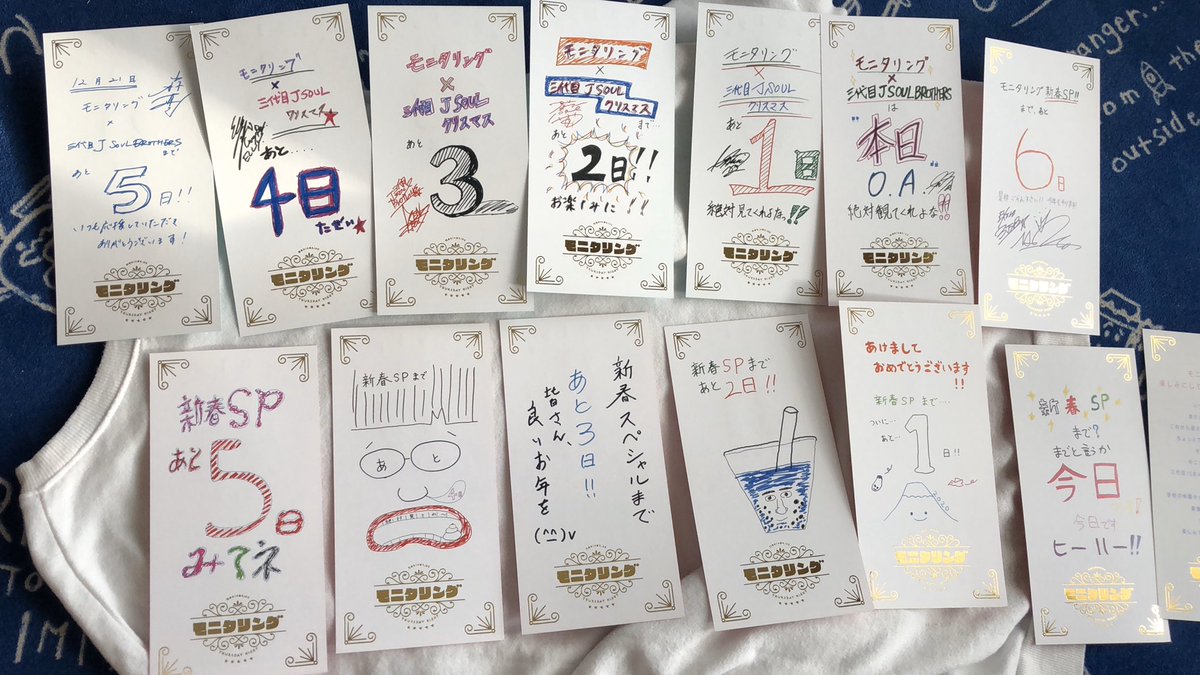 12月21日
モニタリング
×
三代目 J SOUL BROTHERS まで
あと
5日!!
いつも応援していただいて
ありがとうございます!
モニタリング
THURSDAY NIGHT
モニタリング
×
三代目 J SOUL
クリスマス
あと....
4日
だぜい★
モニタリング
THURSDAY NIGHT
モニタリング
×
三代目 J SOUL
クリスマス
あと
3
モニタリング
THURSDAY NIGHT
モニタリング
×
三代目 J SOUL
クリスマス
まで...
あと
2日!!
お楽しみに!!
モニタリング
THURSDAY NIGHT
モニタリング
×
三代目 J SOUL
クリスマス
あと
1日
絶対見てくれよなっ!!
モニタリング
THURSDAY NIGHT
モニタリング
×
三代目 J SOUL BROTHERS
は
本日
O.A.
絶対観てくれよな!!
モニタリング
THURSDAY NIGHT
モニタリング新春SP!!
まで、あと
6日
モニタリング
THURSDAY NIGHT
新春SP
あと
5日
みてネ
モニタリング
THURSDAY NIGHT
新春SPまで
あと
4日
モニタリング
THURSDAY NIGHT
新春スペシャルまで
あと3日!!
皆さん、
良いお年を
(^^)v
モニタリング
THURSDAY NIGHT
新春SPまで
あと2日!!
モニタリング
THURSDAY NIGHT
あけまして
おめでとうございます
!!
新春SPまで...
ついに...
あと...
1日!!
2020
モニタリング
THURSDAY NIGHT
新春SP
まで?
までと言うか
今日
今日です
ヒーハー!!
モニタリング
THURSDAY NIGHT
tranger...
om
outside
the